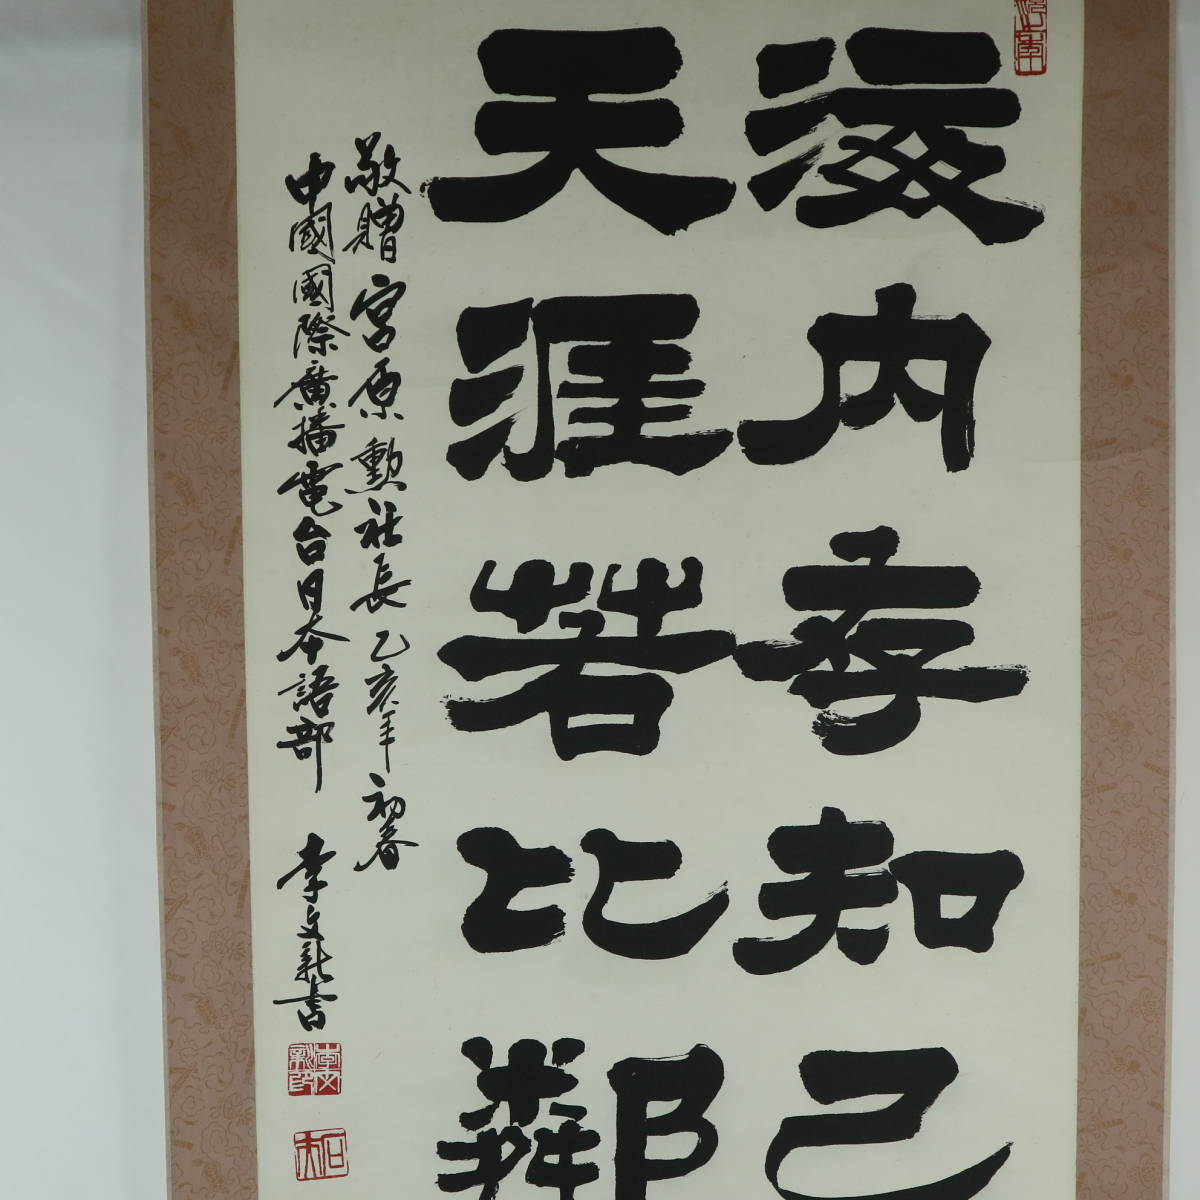 海内存知己
天涯若比鄰
敬贈宮原勲社長乙亥年初春
中國國際廣播電台日本語部 李文新書
李文新印